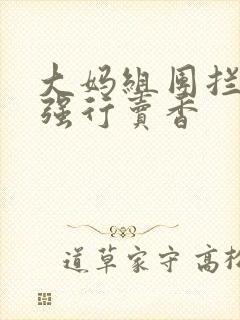 大妈组团拦
强行卖香
道草家守高松